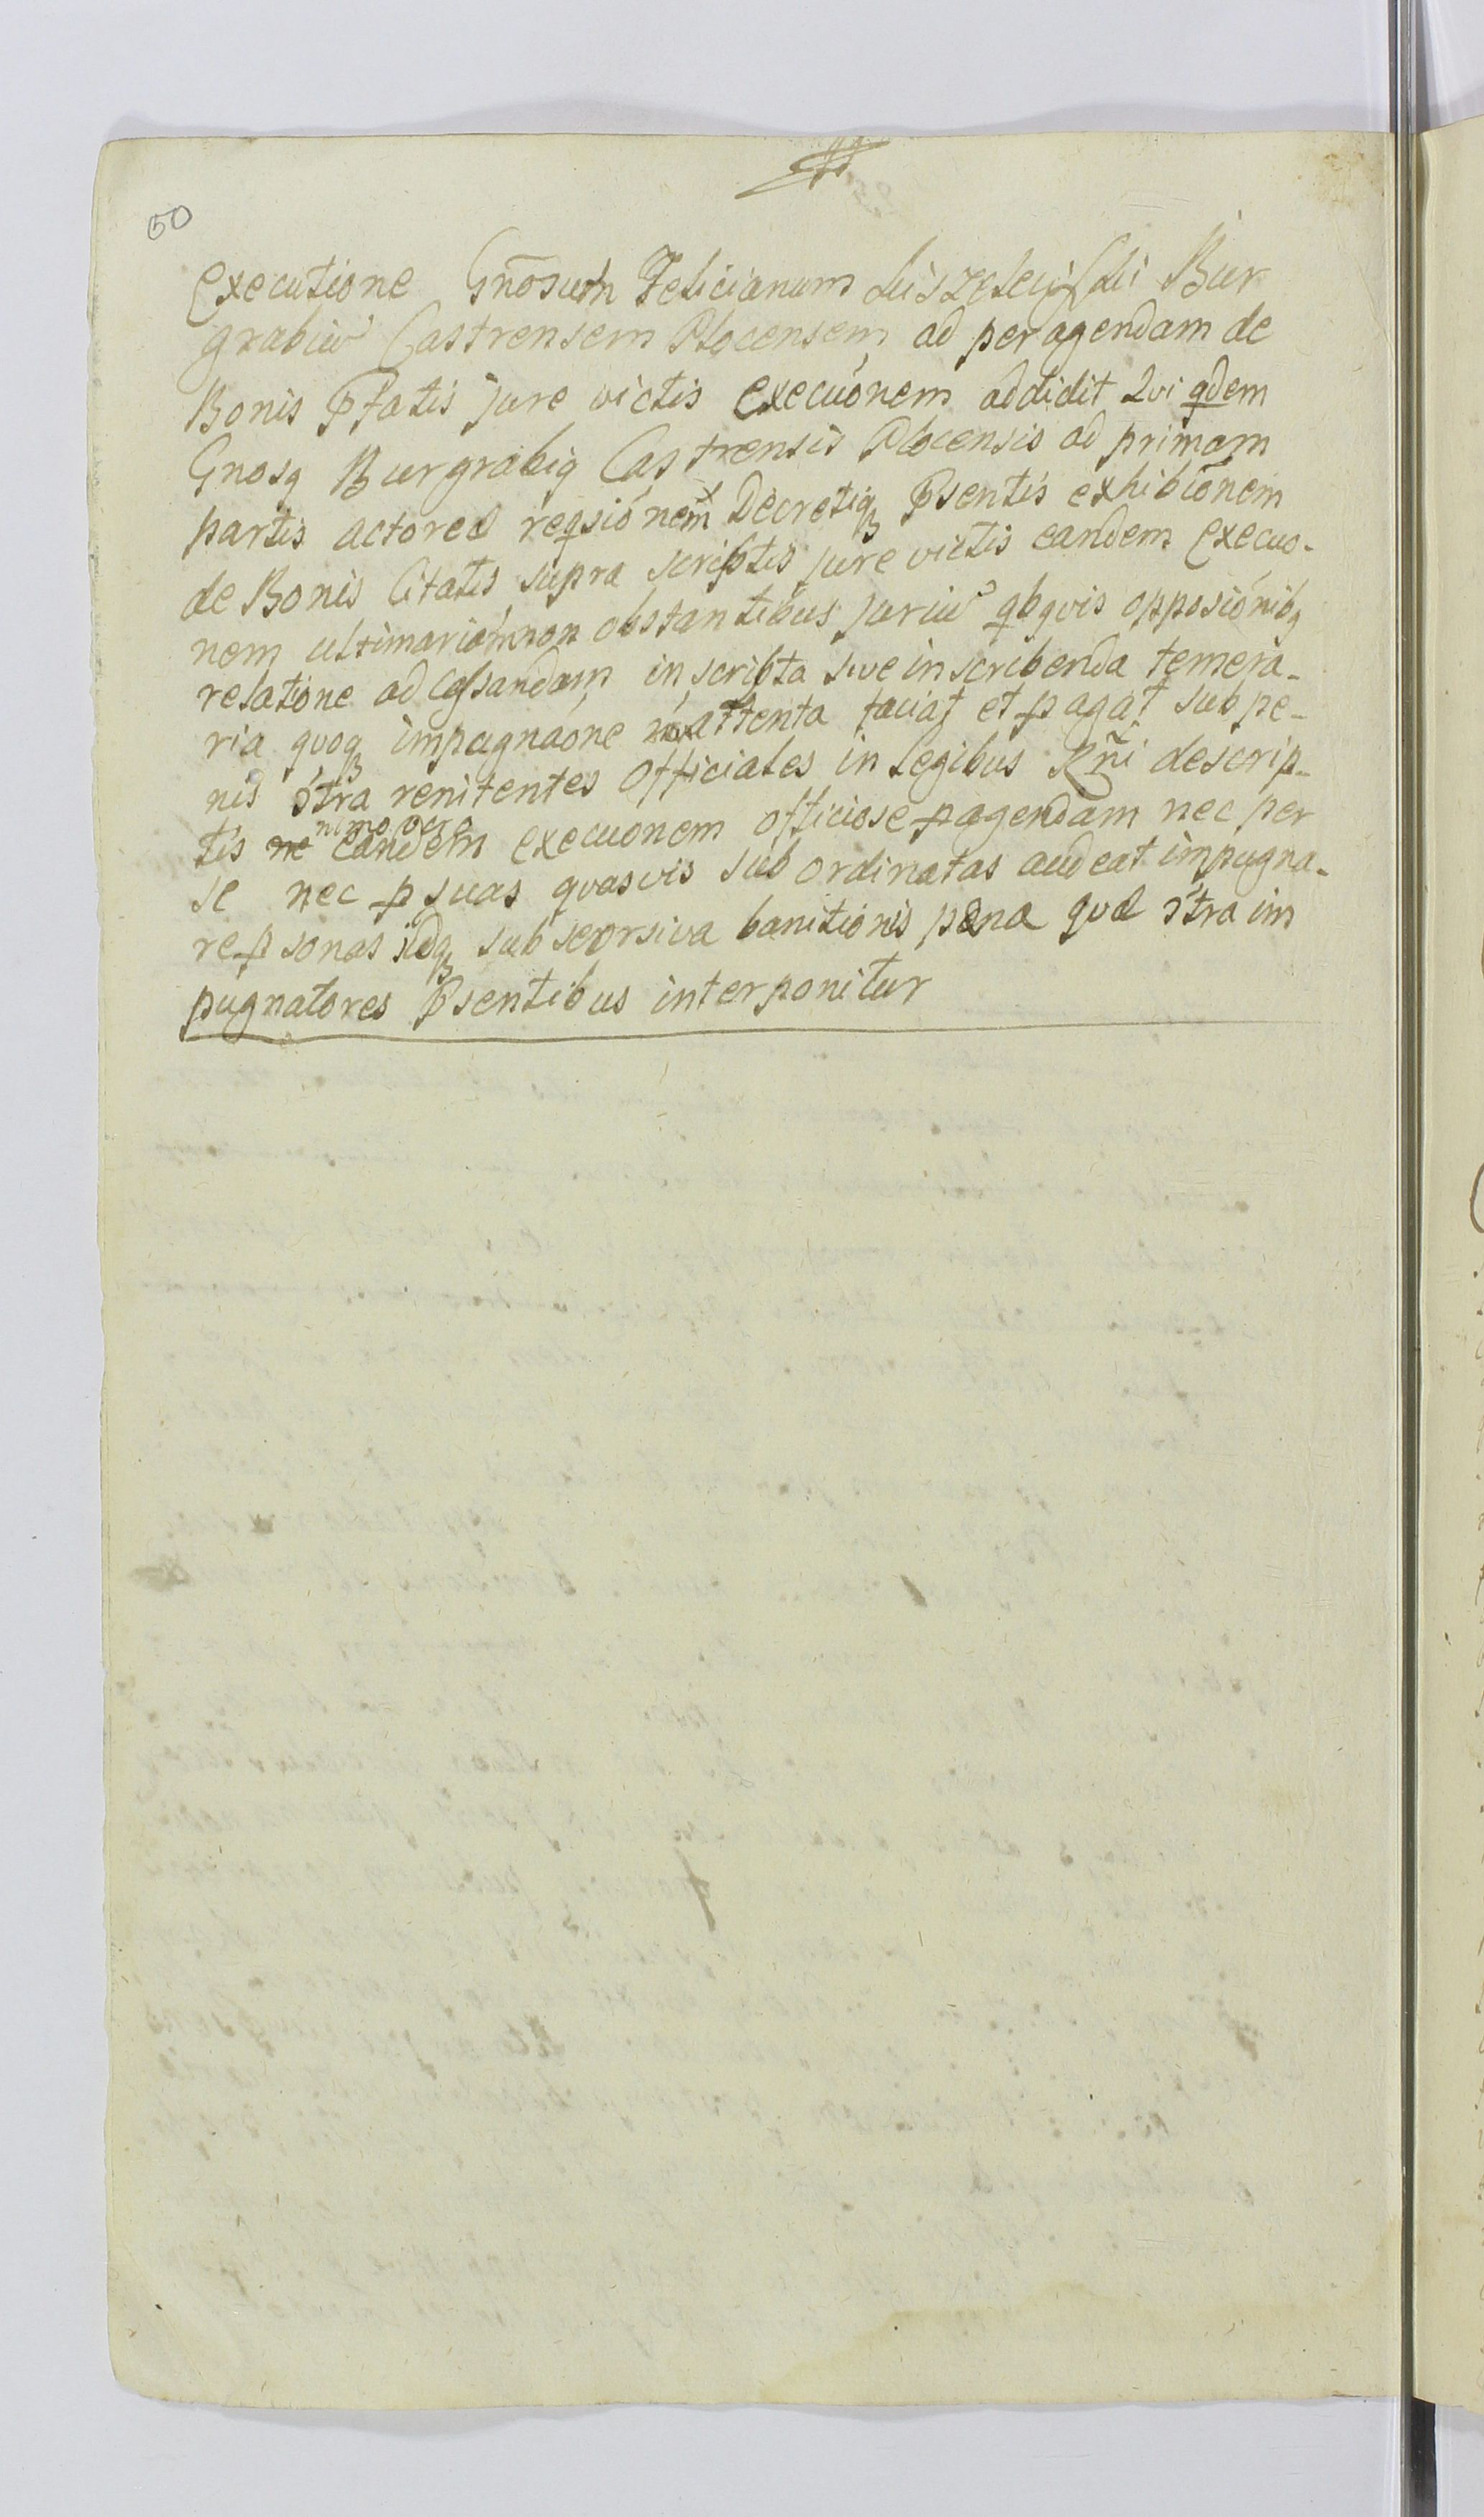 50
Executione Gnõsum Felicianum Bur
grabiu Castrensem Plocensem ad peragendam de
Bonis Pfatis jure victis execuónem addidit Qvi qdem
Gnosq Burgrabiq Castrensis Plocensis ad primam
partis actorea reqsiónem Decretiqʒ Psentis exhibiõnem
de Bonis Citatis supra scriptis jure victis eandem Execuo-
nem ultimariam non obstantibus juriu qbqvis opposiónibq
relatione ad cassandam inscripta sive inscribenda temera-
ria qvoqʒ impugnaóne inattenta faciat et pagat sub pe-
nis ótra renitentes Officiales in Legibus Rñi descrip-
tis ne nemo vero eandem execuonem officiose pagendam nec per
se nec p suas qvasvis subordinatas audeat impugna-
re psonas idqʒ sub seorsiva banitionis pæna qvæ ótra im
pugnatores Psentibus interponitur